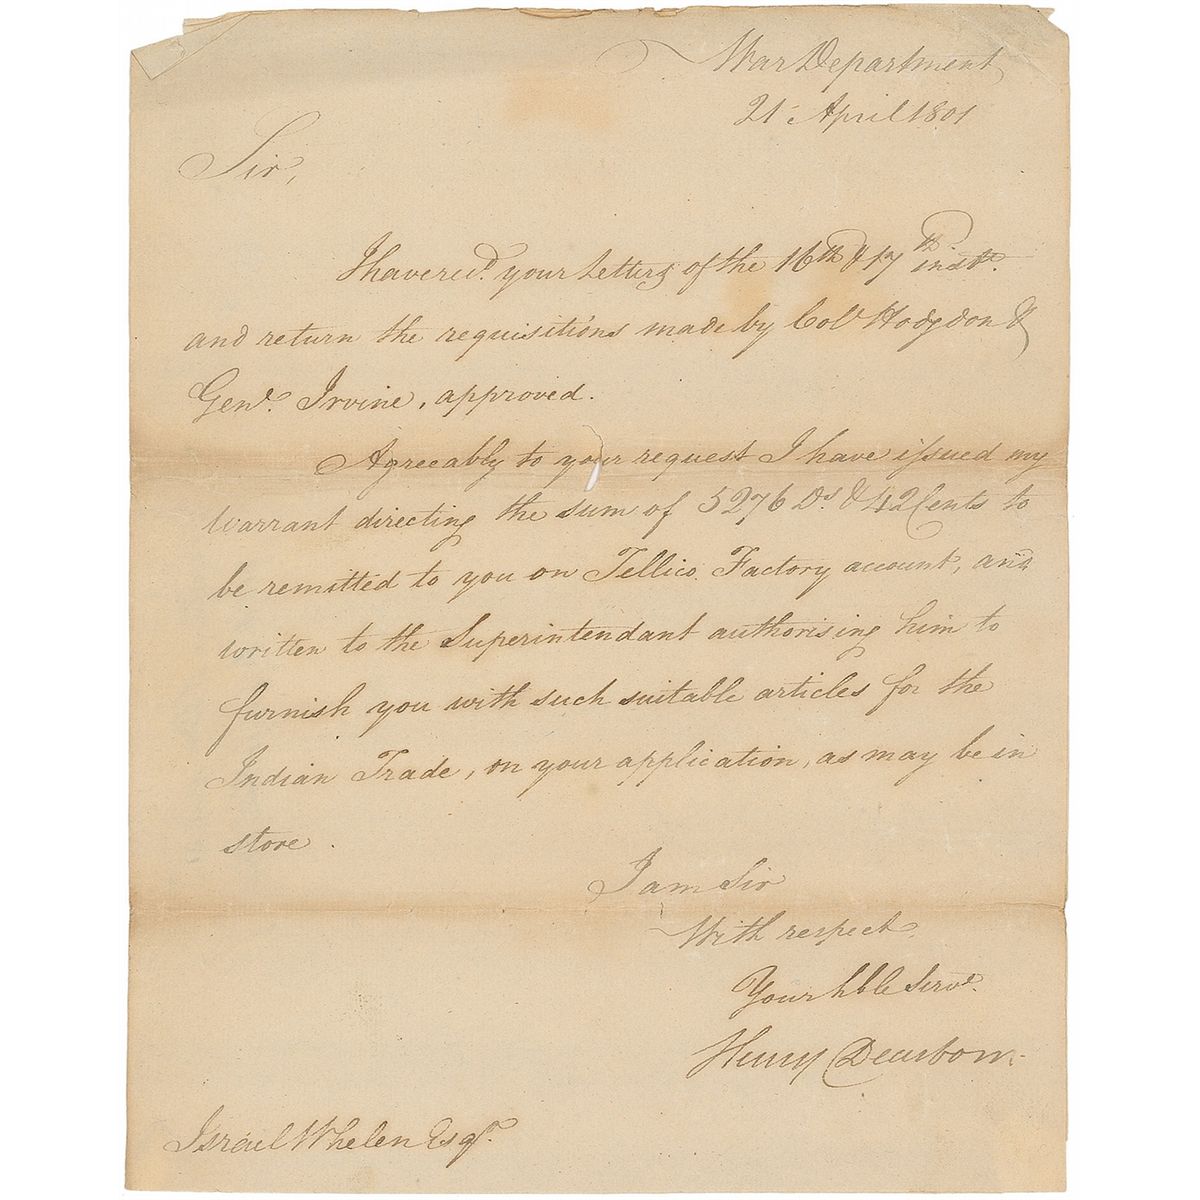 War Department
21 April 1801
Sir,
I have recd. your Letters of the 16th & 17th inst.
and return the requisitions made by Colo. Hodgdon &
Genl. Irvine, approved.
Agreeably to your request I have issued my
warrant directing the sum of 5276 Ds. & 42 Cents to
be remitted to you on Tellico Factory account, and
written to the Superintendant authorising him to
furnish you with such suitable articles for the
Indian Trade, on your application, as may be in
store.
I am Sir
With respect
Your hble Servt.
Henry Dearborn
Israel Whelen Esqr.